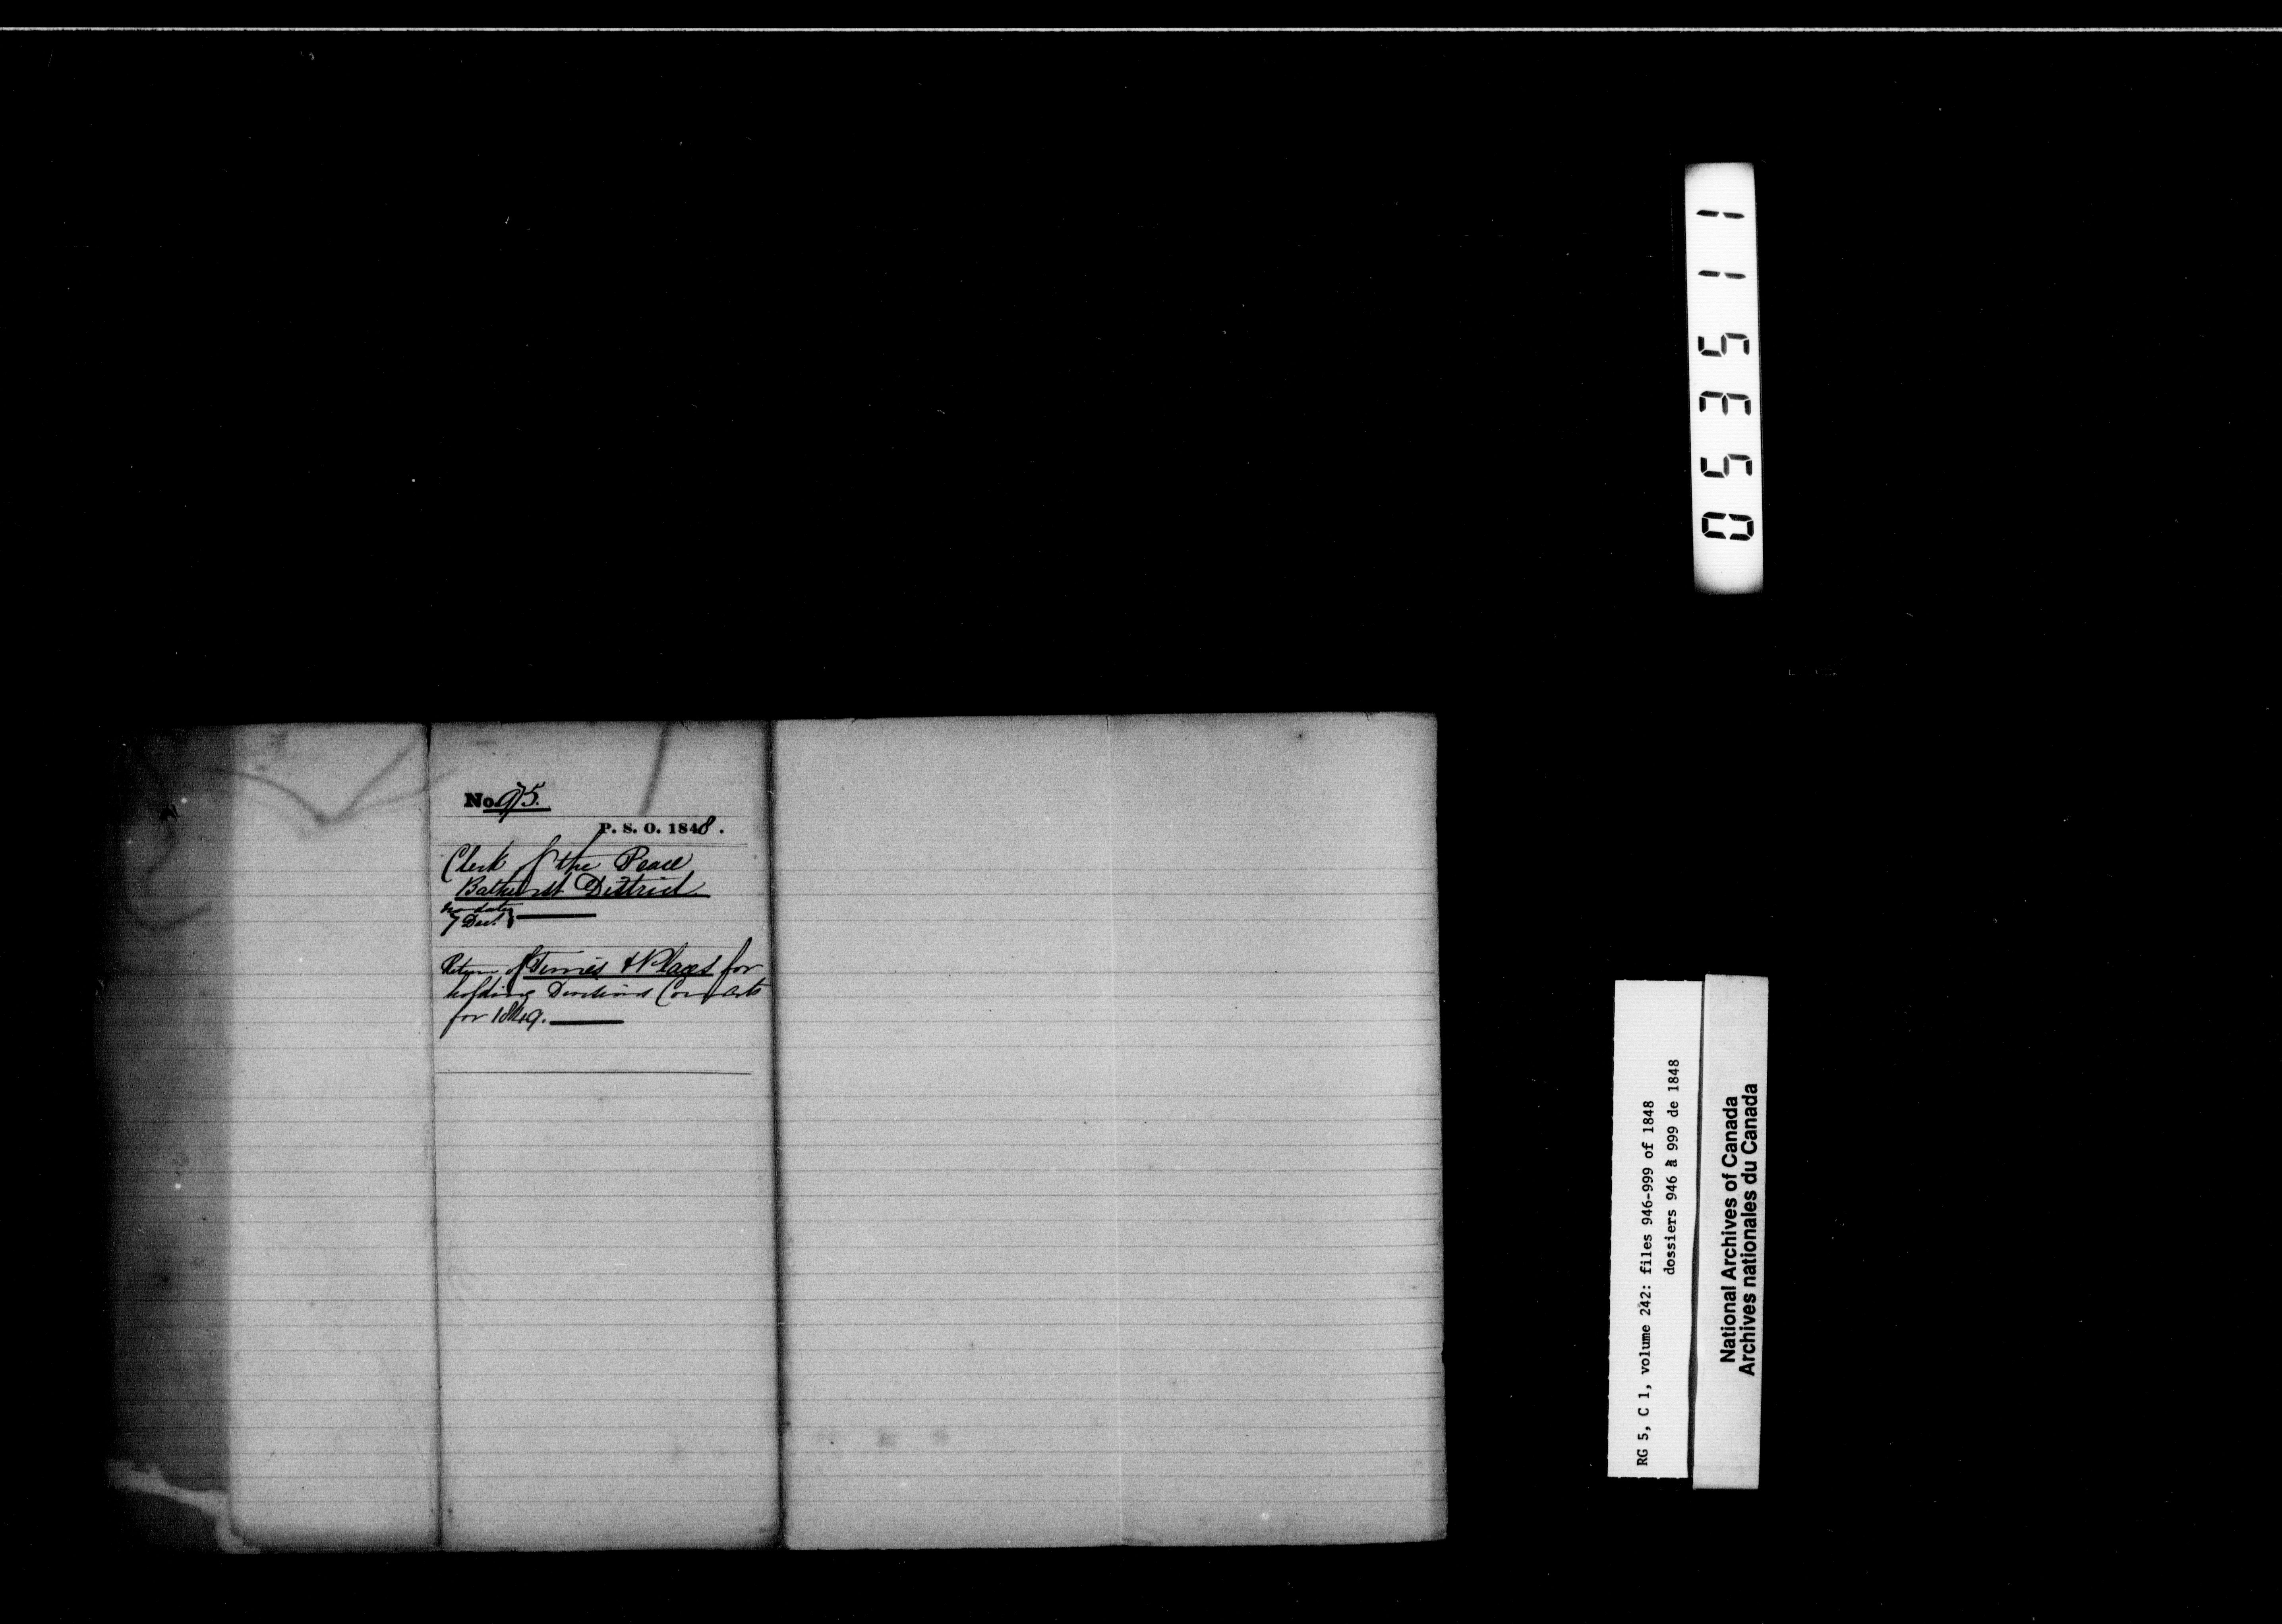 No. 975.
P. S. O. 1848.
Clerk of the Peace
Bathurst District
no date
7 Dec.
Return of Times & Places for
holding Divisions Courts
for 1849.
053511
RG 5, C 1, volume 242: files 946-999 of 1848
dossiers 946 à 999 de 1848
National Archives of Canada
Archives nationales du Canada